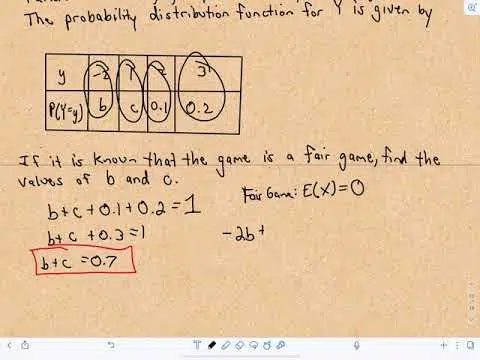 The probability distribution function for Y is given by
y -2 1 2 3
P(Y=y) b c 0.1 0.2
If it is known that the game is a fair game, find the
values of b and c.
Fair Game: E(X)=0
b+c+0.1+0.2=1
b+c+0.3=1
-2b+
b+c=0.7